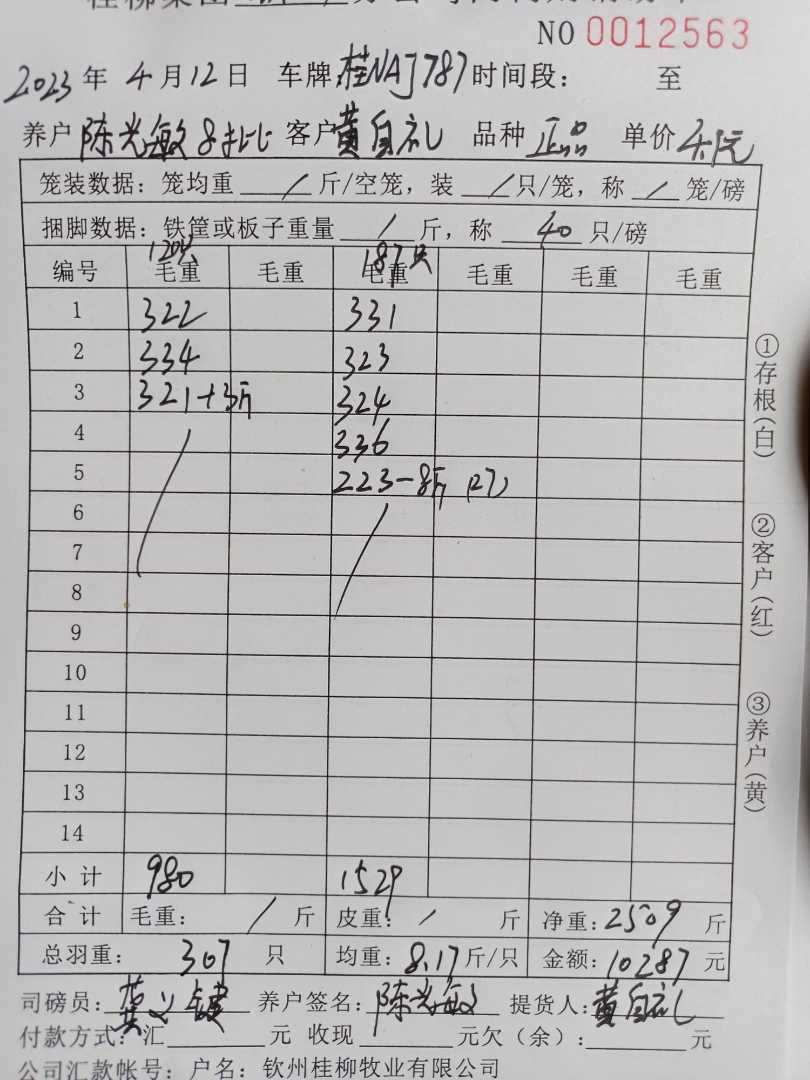 NO 0012563
2023 年 4 月 12 日 车牌:桂NAJ787 时间段: 至
养户 陈光敏8批 客户 黄自礼 品种 正品 单价 4.1元
笼装数据: 笼均重 / 斤/空笼, 装 / 只/笼, 称 / 笼/磅
捆脚数据: 铁筐或板子重量 / 斤, 称 40 只/磅
120只 187只
编号 毛重 毛重 毛重 毛重 毛重 毛重
1 322 331
2 334 323
3 321+3斤 324
4 336
5 223-8斤 (27)
6
7
8
9
10
11
12
13
14
小计 980 1529
合计 毛重: / 斤 皮重: / 斤 净重: 2509 斤
总羽重: 307 只 均重: 8.17斤/只 金额: 10287 元
司磅员: 养户签名: 陈光敏 提货人: 黄自礼
付款方式: 汇 元 收现 元欠(余): 元
公司汇款帐号: 户名: 钦州桂柳牧业有限公司
①存根(白)
②客户(红)
③养户(黄)